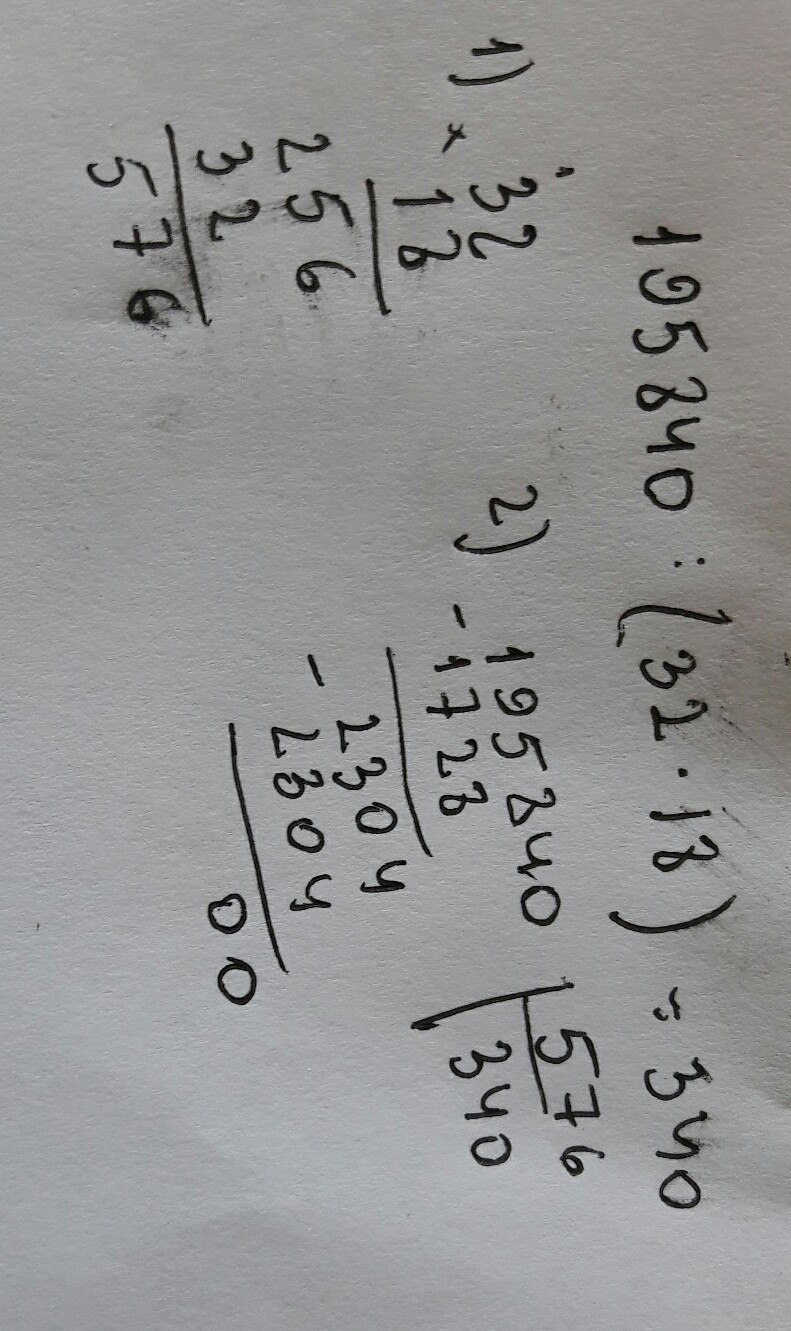 195840 : (32 · 18) = 340
1) × 32
18
256
32
576
2) - 195840 | 576
1728 | 340
- 2304
2304
00